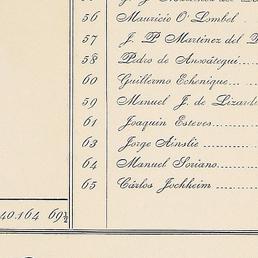 56 Mauricio O'Lombel
57 J. P Martinez del
58 Pedro de Ansoátegui
60 Guillermo Echenique
59 Manuel J. de Lizardi
61 Joaquin Esteves
63 Jorge Ainslie
64 Manuel Soriano
65 Cárlos Jockheim
40.164 69½